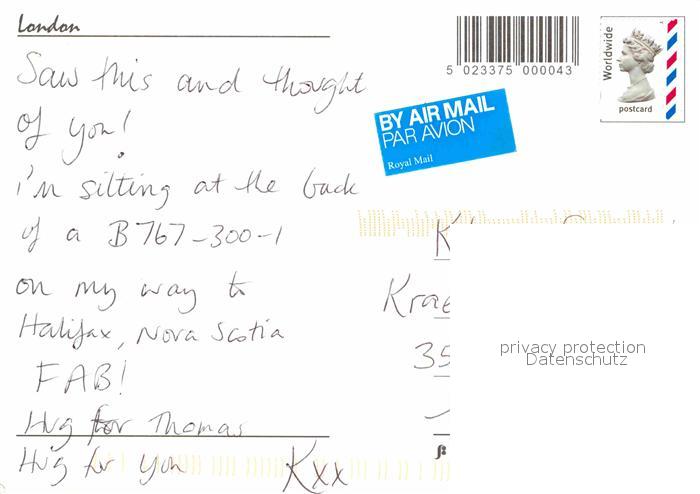 London
Saw this and thought
of you!
i'm sitting at the back
of a B767-300-1
on my way to
Halifax, Nova Scotia
FAB!
Hug for Thomas
Hug for you
Kxx
5 023375 000043
Worldwide
postcard
BY AIR MAIL
PAR AVION
Royal Mail
K
Krae
35
privacy protection
Datenschutz